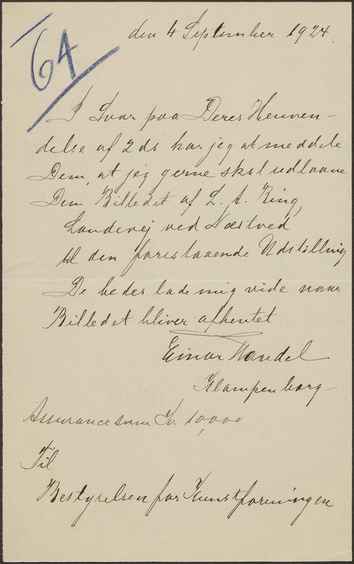 64
den 4 September 1924.
I Svar paa Deres Henven-
delse af 2 ds har jeg at meddele
Dem, at jeg gerne skal udlaane
Dem Billedet af L. A. Ring,
Landevej ved Næstved
til den forestaaende Udstilling
De bedes lade mig vide naar
Billedet bliver afhentet
Einar
Klampenborg
Assurancesum Kr. 10,000
Til
Bestyrelsen for Kunstforeningen